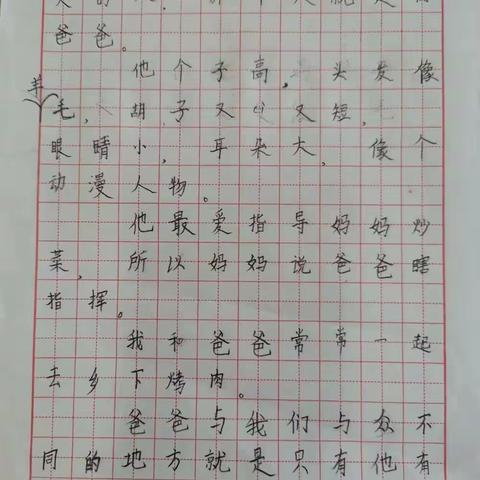 爸爸。
他个子高,头发像
羊
毛,胡子又又短,
眼睛小,耳朵大,像个
动漫人物。
他最爱指导妈妈炒
菜,所以妈妈说爸爸瞎
指挥。
我和爸爸常常一起
去乡下烤肉。
爸爸与我们与众不
同的地方就是只有他有